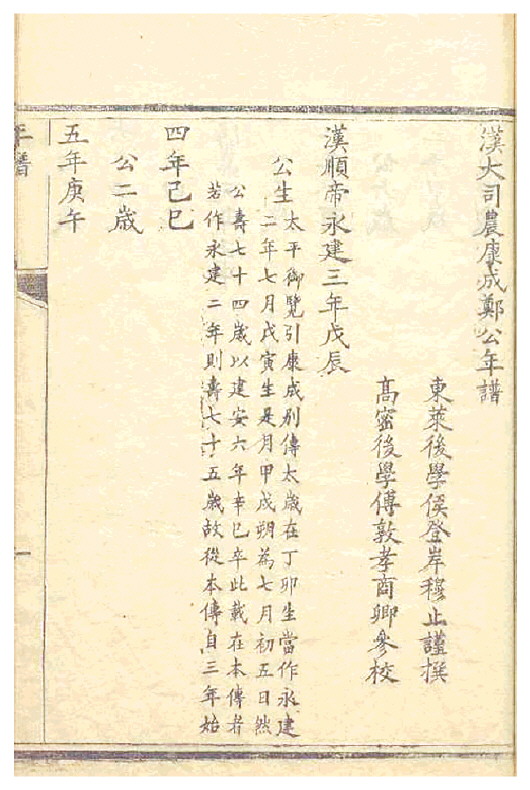 漢大司農康成鄭公年譜
東萊後學侯登岸穆止謹撰
高密後學傅敦孝商卿參校
漢順帝永建三年戊辰
公生太平御覽引康成别傳太歲在丁卯生當作永建
二年七月戊寅生是月甲戌朔為七月初五日然
公壽七十四歲以建安六年辛巳卒此載在本傳者
若作永建二年則壽七十五歲故從本傳自三年始
四年己巳
公二歲
五年庚午
年譜
一